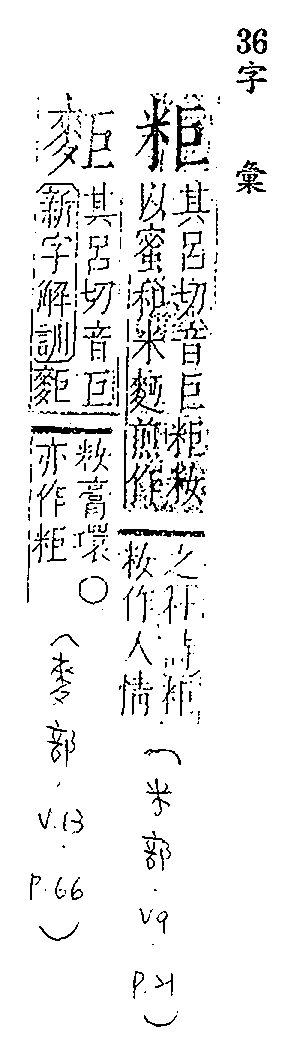 36字彙
粔
其呂切音巨粔籹
以蜜和米麪煎作
之
籹作人情
(米部.V9.P.21)
䴶
其呂切音巨
新字解訓䴶
籹膏環○
亦作粔
(麥部.V.13.P.66)